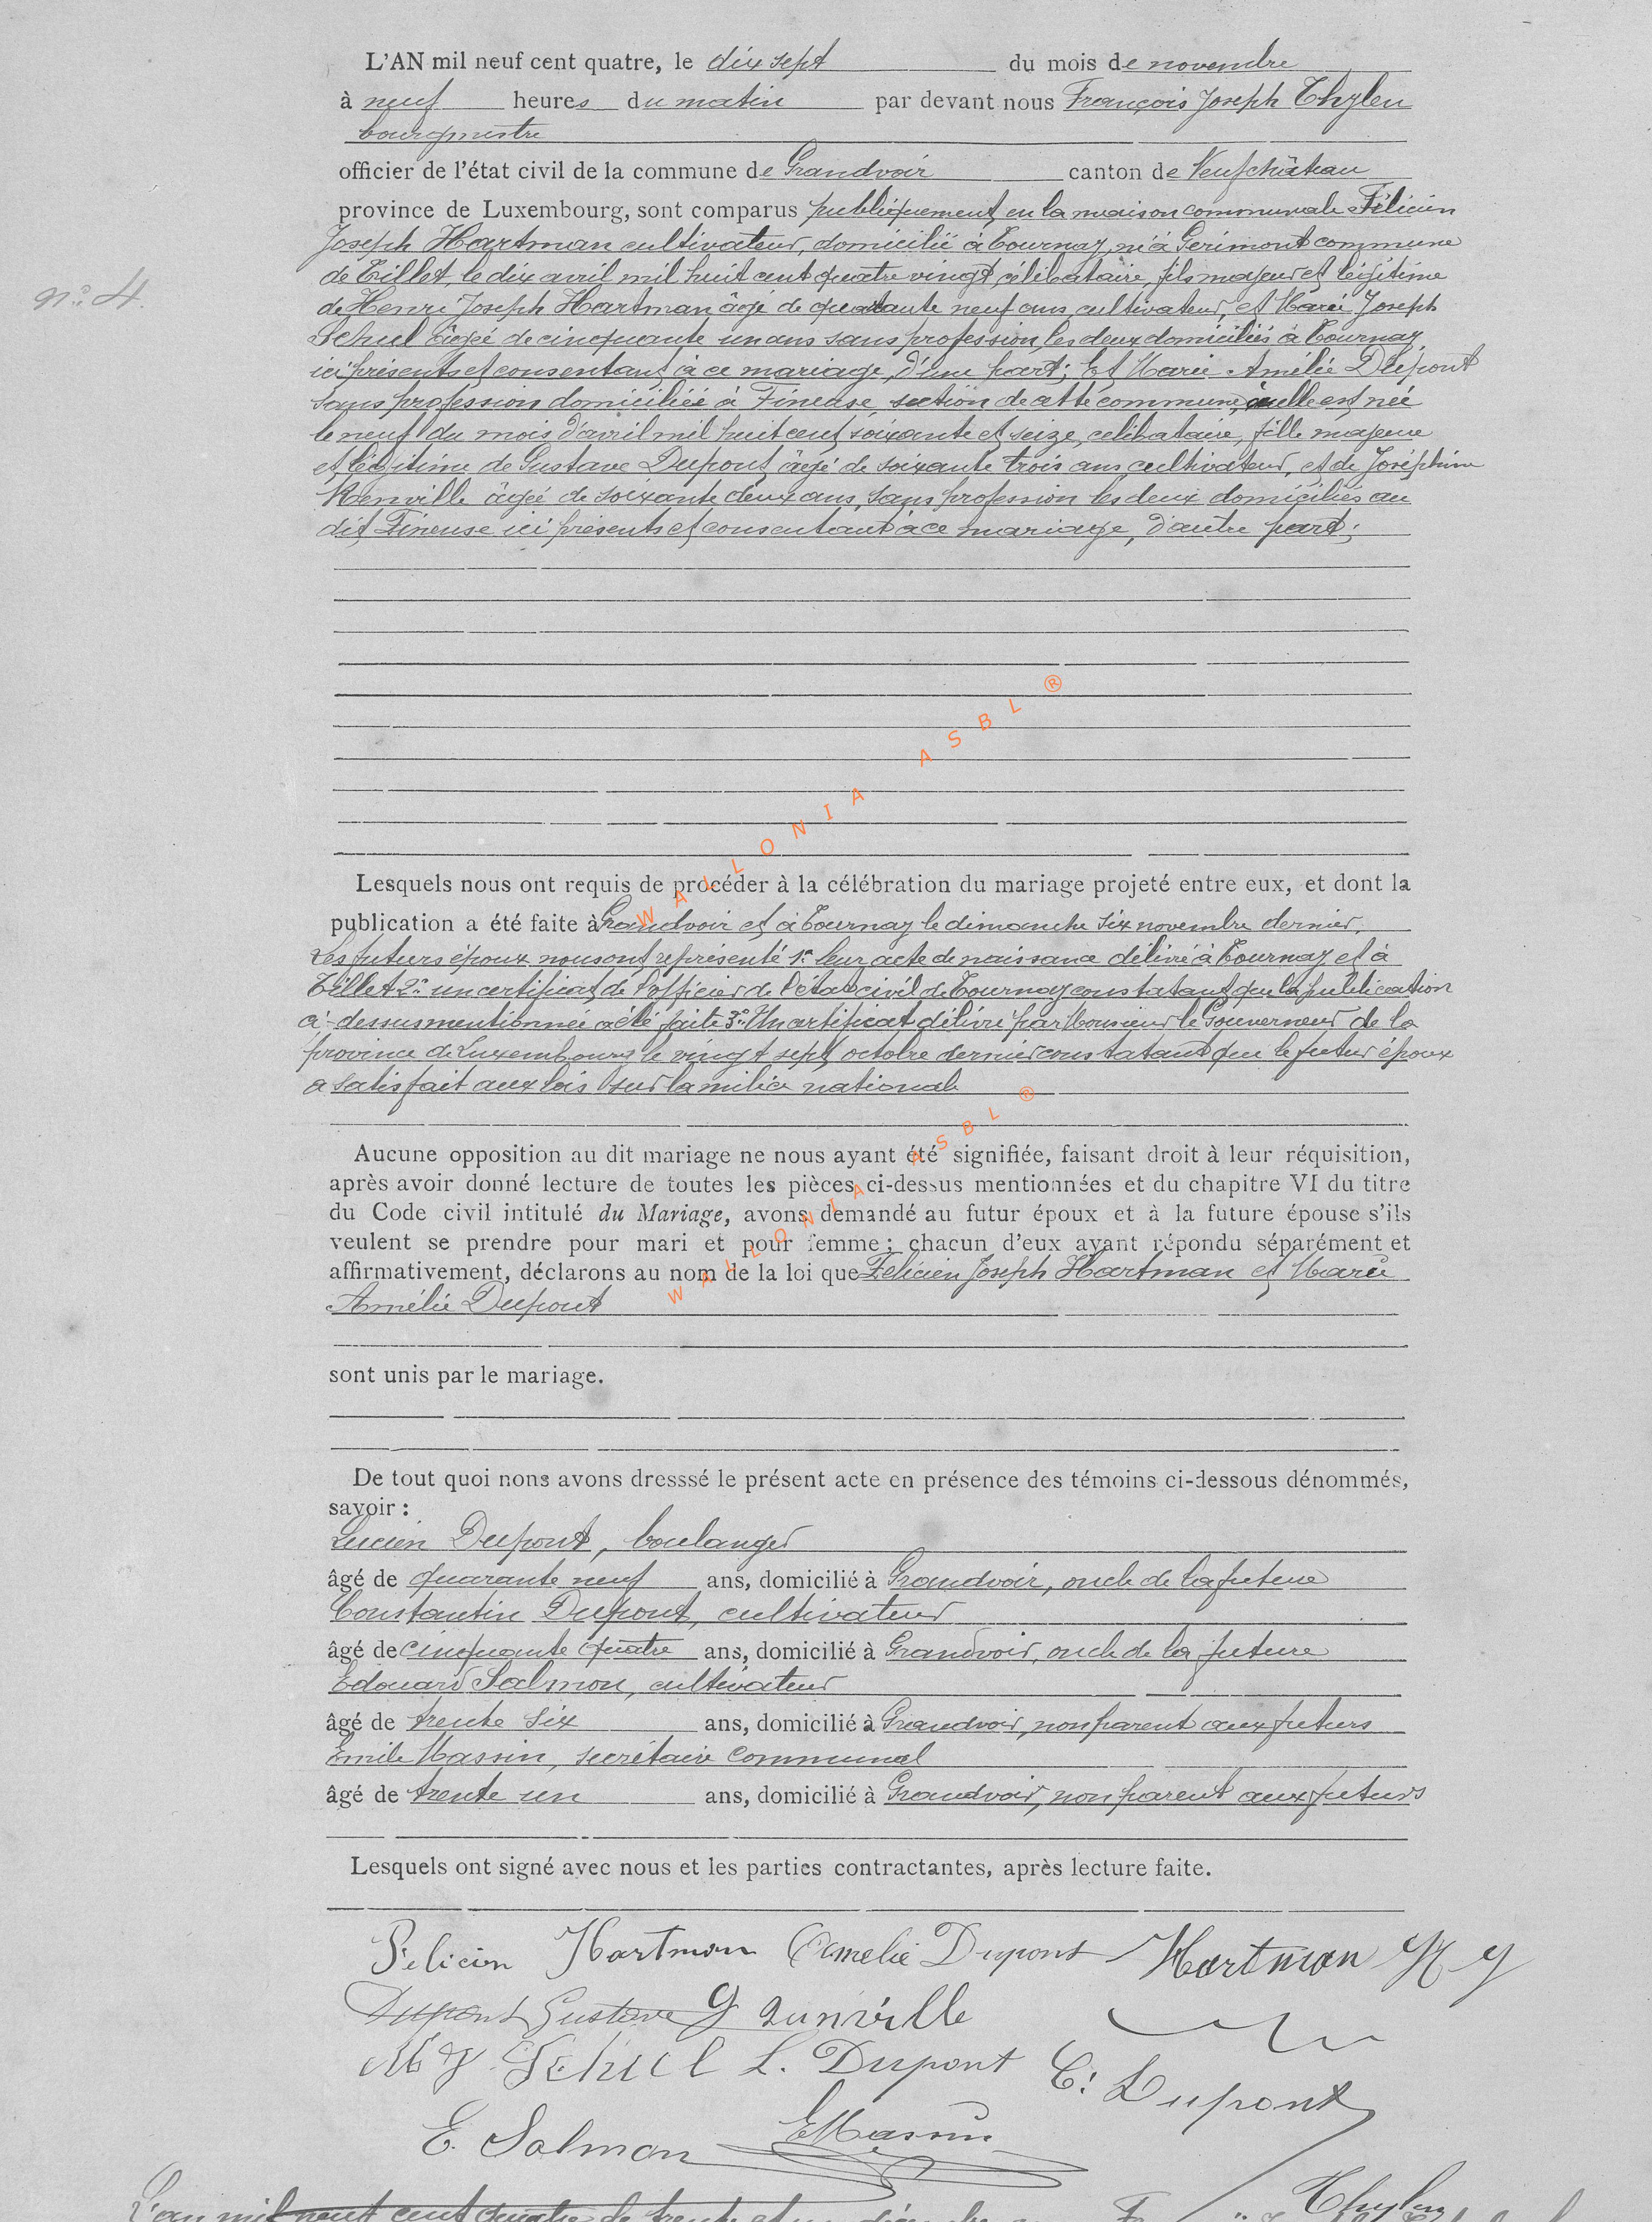 L'AN mil neuf cent quatre, le dix sept du mois de novembre
à neuf heures du matin par devant nous François Joseph Thylen
bourgmestre
officier de l'état civil de la commune de Grandvoir canton de Neufchâteau
province de Luxembourg, sont comparus publiquement en la maison communale Félicien
Joseph Hartman cultivateur, domicilié à Tournay, né à Gerimont commune
de Tillet, le dix avril mil huit cent quatre vingt, célibataire, fils majeur et légitime
de Henri Joseph Hartman âgé de quarante neuf ans, cultivateur, et Marie Joseph
Schul âgée de cinquante un ans sans profession, les deux domiciliés à Tournay,
ici présents et consentant à ce mariage, d'une part; Et Marie Amélie Dupont
sans profession domiciliée à Fineuse, section de cette commune, où elle est née
le neuf du mois d'avril mil huit cent soixante et seize, célibataire, fille majeure
et légitime de Gustave Dupont, âgé de soixante trois ans, cultivateur, et de Joséphine
âgée de soixante deux ans, sans profession les deux domiciliés au
dit Fineuse ici présents et consentant à ce mariage, d'autre part;
Lesquels nous ont requis de procéder à la célébration du mariage projeté entre eux, et dont la
publication a été faite à Grandvoir et à Tournay le dimanche six novembre dernier.
Les futurs époux nous ont représenté 1° leur acte de naissance délivré à Tournay et à
Tillet 2° un certificat de l'officier de l'état civil de Tournay constatant que la publication
ci-dessus mentionnée a été faite 3° Un certificat délivré par Monsieur le Gouverneur de la
province de Luxembourg le vingt sept octobre dernier constatant que le futur époux
a satisfait aux lois sur la milice nationale
Aucune opposition au dit mariage ne nous ayant été signifiée, faisant droit à leur réquisition,
après avoir donné lecture de toutes les pièces ci-dessus mentionnées et du chapitre VI du titre
du Code civil intitulé du Mariage, avons demandé au futur époux et à la future épouse s'ils
veulent se prendre pour mari et pour femme; chacun d'eux ayant répondu séparément et
affirmativement, déclarons au nom de la loi que Félicien Joseph Hartman et Marie
Amélie Dupont
sont unis par le mariage.
De tout quoi nons avons dresssé le présent acte en présence des témoins ci-dessous dénommés,
savoir :
Lucien Dupont, boulanger
âgé de quarante neuf ans, domicilié à Grandvoir, oncle de la future
Constantin Dupont, cultivateur
âgé de cinquante quatre ans, domicilié à Grandvoir, oncle de la future
Edouard Salmon, cultivateur
âgé de trente six ans, domicilié à Grandvoir, non parent aux futurs
Emile Massin, secrétaire communal
âgé de trente un ans, domicilié à Grandvoir, non parent aux futurs
Lesquels ont signé avec nous et les parties contractantes, après lecture faite.
Félicien Hartman Amelie Dupont Hartman H J
Dupont Gustave J
M J Schul L. Dupont C: Dupont
E. Salmon E Massin
Thylen
n° 4
WALLONIA ASBL ®
WALLONIA ASBL ®